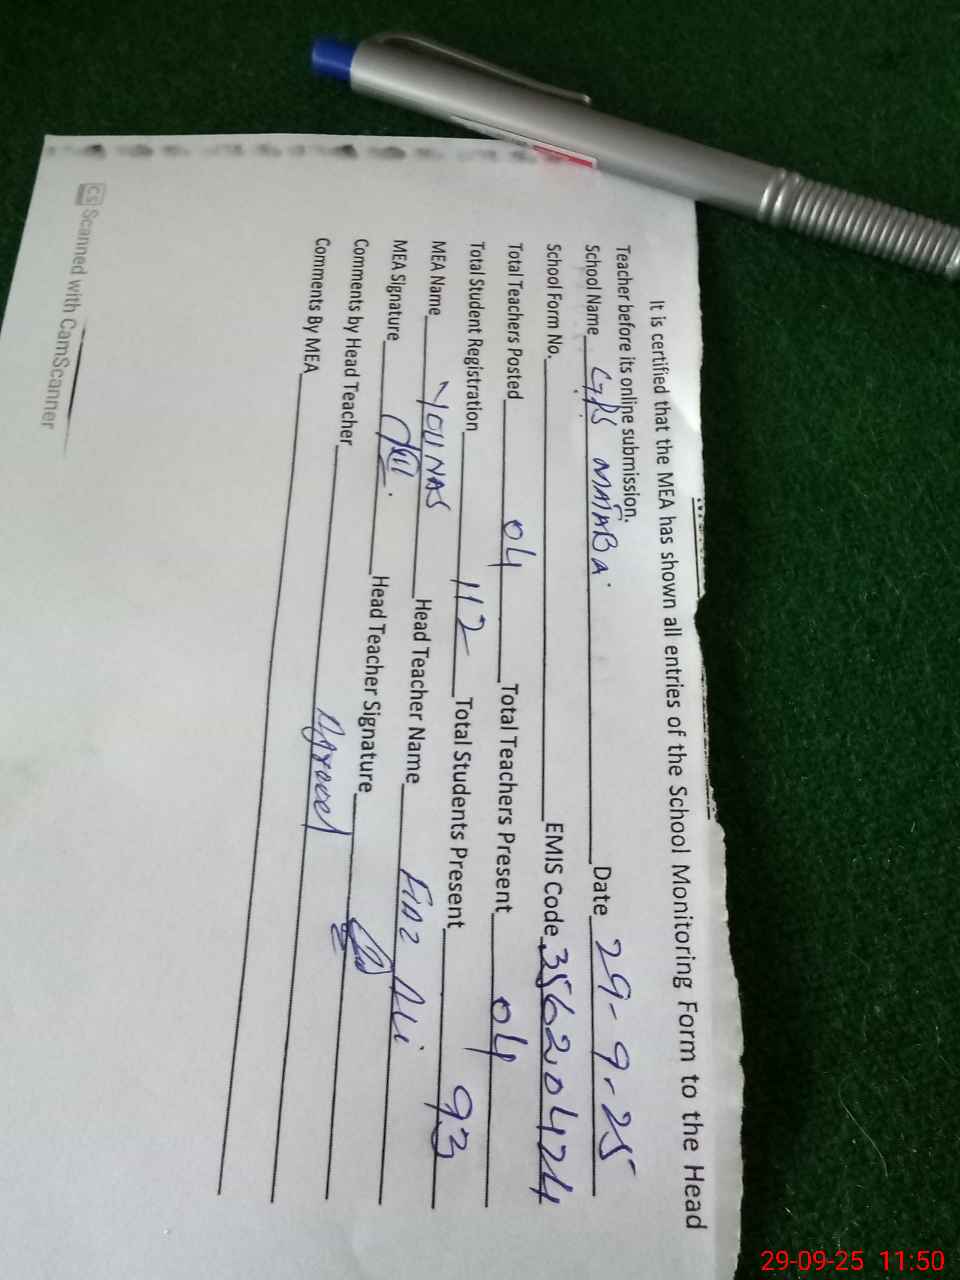 It is certified that the MEA has shown all entries of the School Monitoring Form to the Head
Teacher before its online submission.
School Name GPS Date 29-9-25
School Form No. EMIS Code 35620424
Total Teachers Posted 04 Total Teachers Present 04
Total Student Registration 112 Total Students Present 93
MEA Name YOUNAS Head Teacher Name ALi
MEA Signature Head Teacher Signature
Comments by Head Teacher
Comments By MEA
CS Scanned with CamScanner
29-09-25 11:50